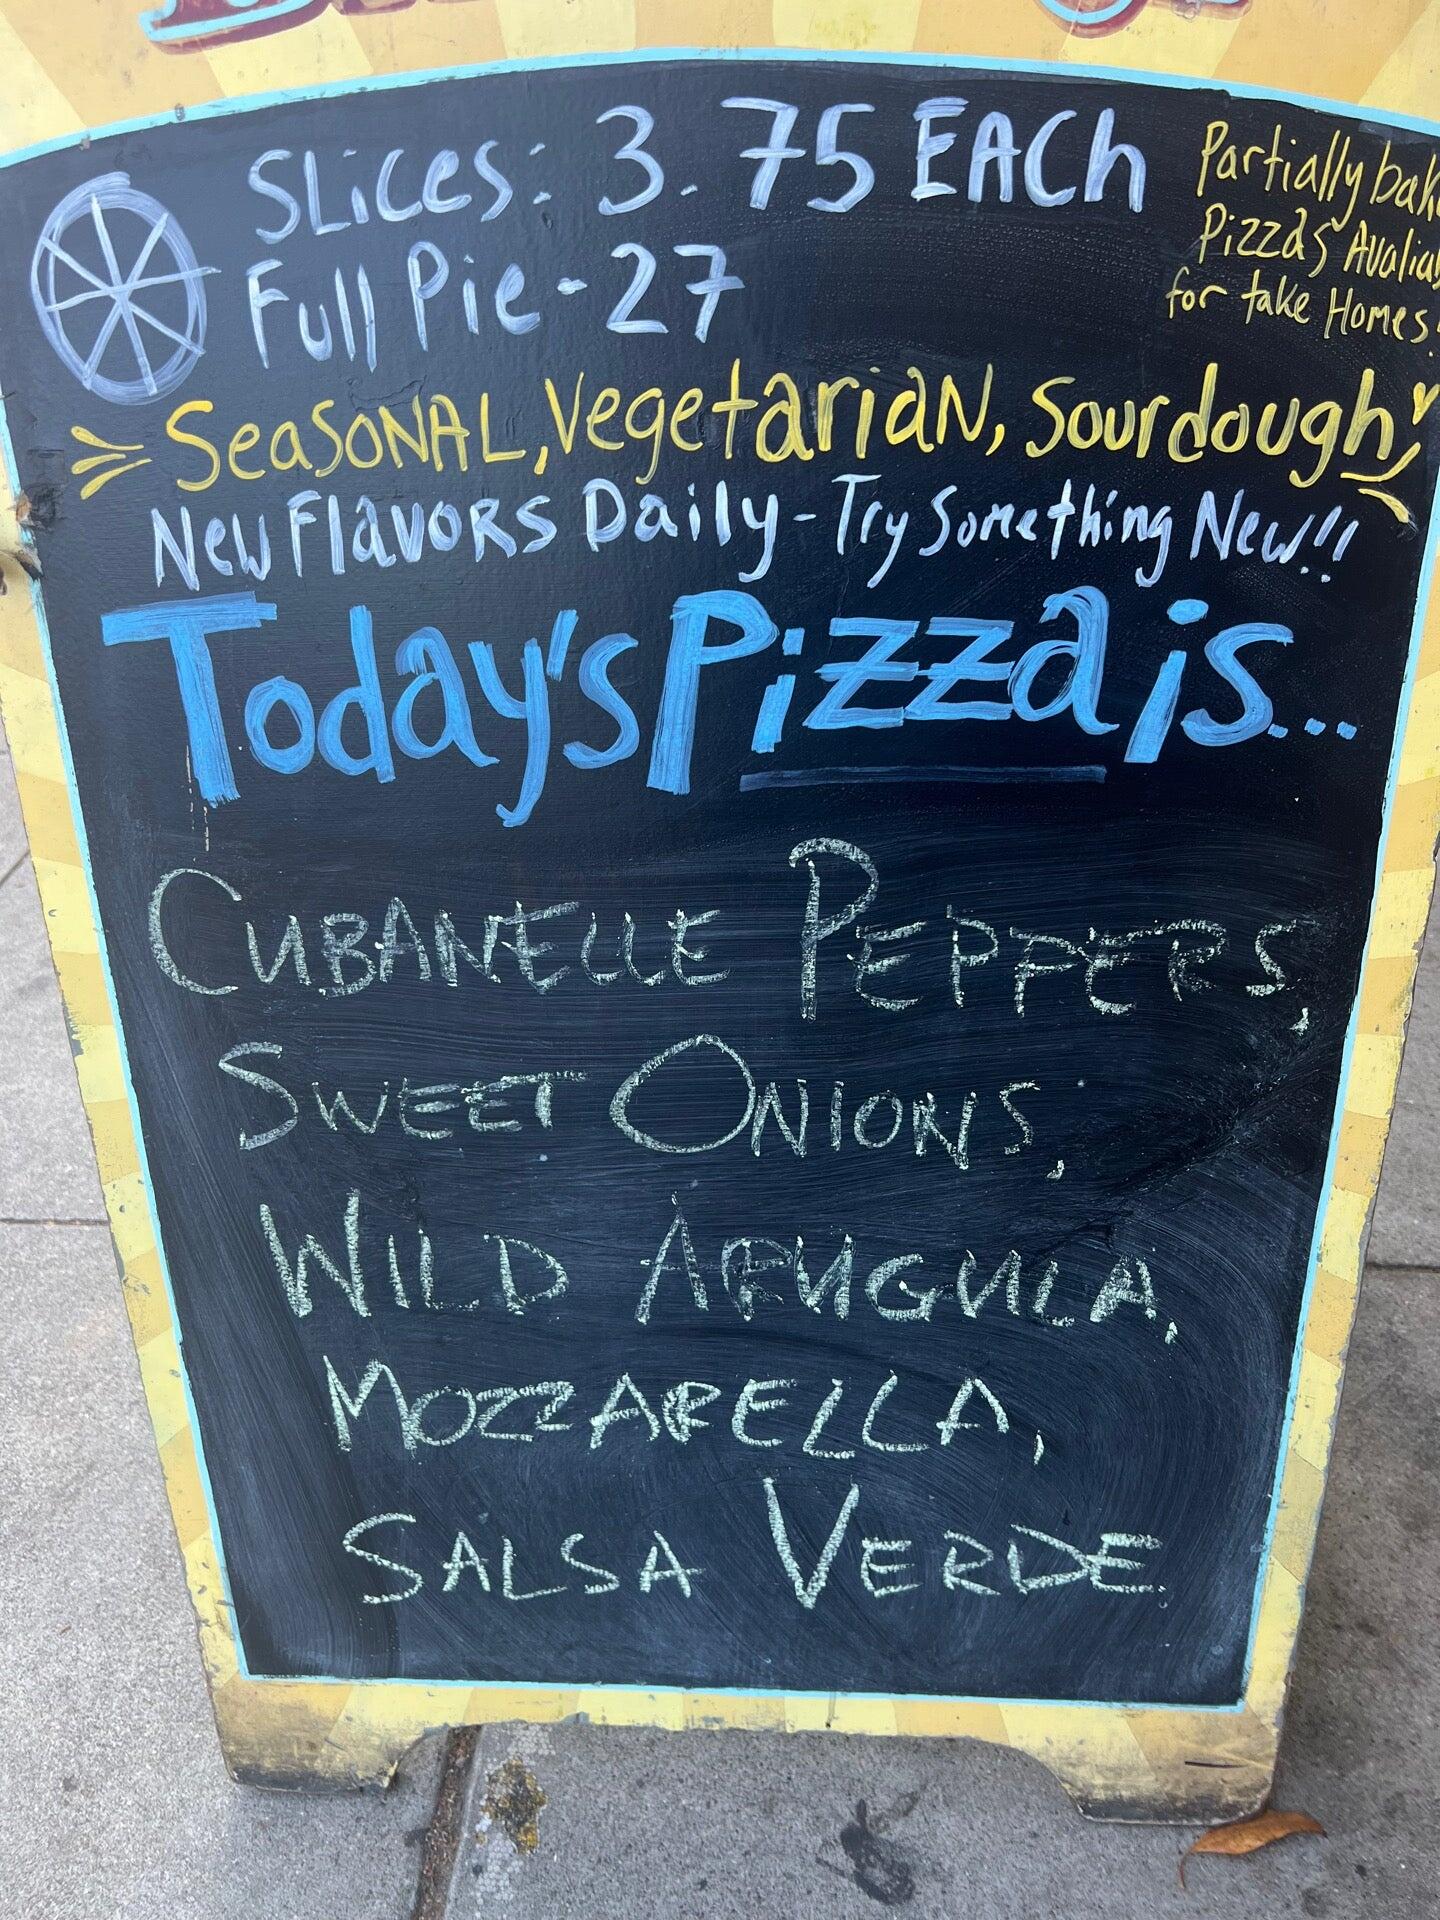 SLices: 3.75 EACh
Full Pie - 27
Partially
Pizzas
for take Homes!
SeaSONAL, VegetariaN, Sourdough!
New FlavoRs Daily - Try Something New!!
Today's Pizza is...
CUBANELLE PEPPERS,
SWEET ONIONS,
WILD ARUGULA,
MOZZARELLA,
SALSA VERDE